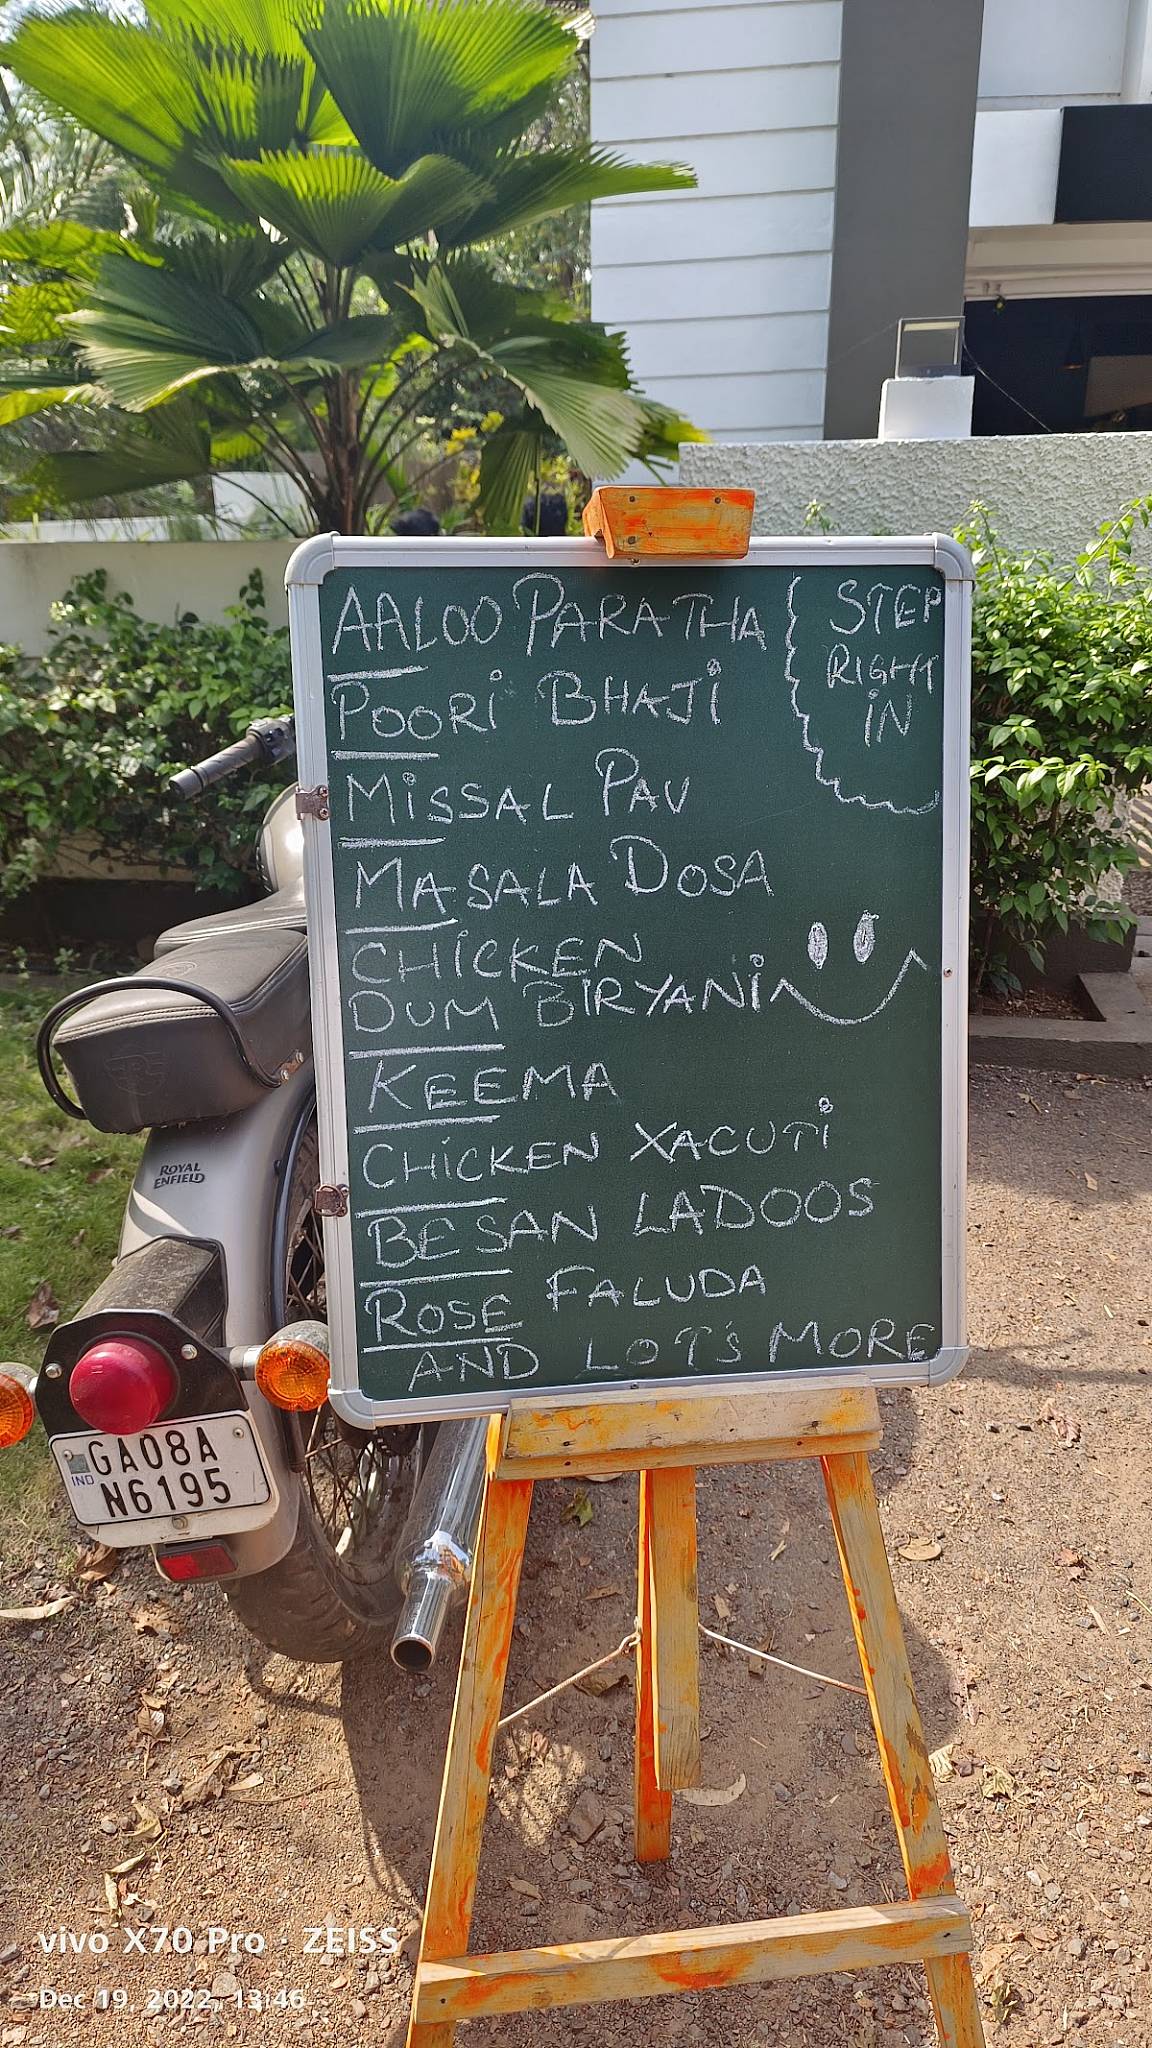 AALOO PARATHA
STEP
RIGHT
IN
POORI BHAJI
MISSAL PAV
MASALA DOSA
CHICKEN
DUM BIRYANI
KEEMA
CHICKEN XACUTI
BESAN LADOOS
ROSE FALUDA
AND LOT'S MORE
ROYAL
ENFIELD
GA08A
IND
N6195
vivo X70 Pro · ZEISS
Dec 19, 2022, 13:46